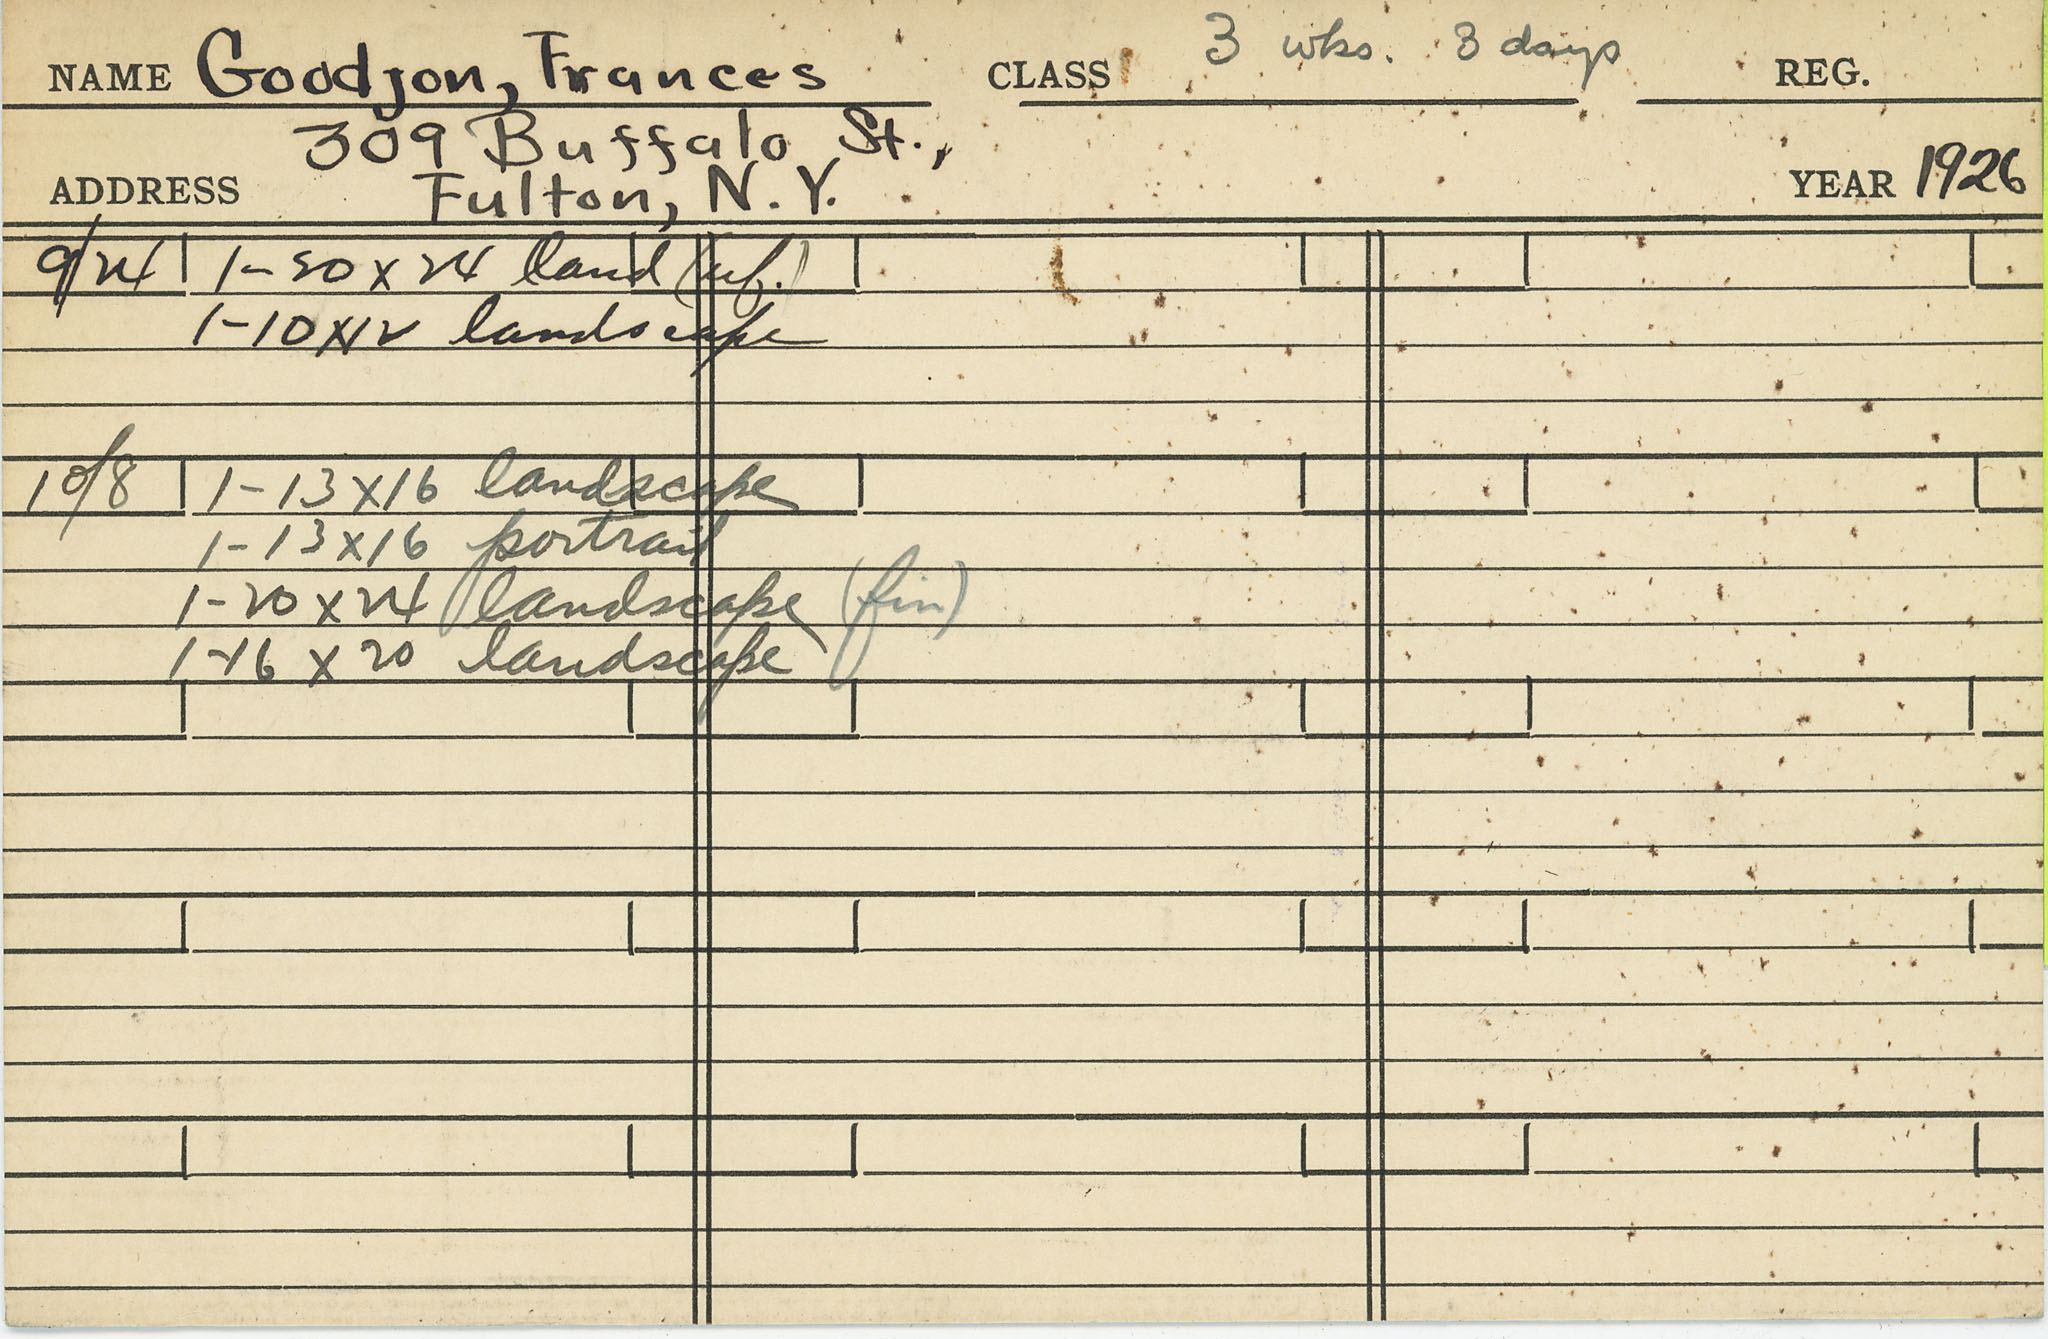 NAME Goodjon, Frances CLASS 3 wks. 3 days REG.
309 Buffalo St.,
ADDRESS Fulton, N.Y. YEAR 1926
9/24 1-20 x 24 land (uf.)
1-10x12 landscape
10/8 1-13 x 16 landscape
1-13 x 16 portrait
1-20 x 24 landscape (fin)
1-16 x 20 landscape